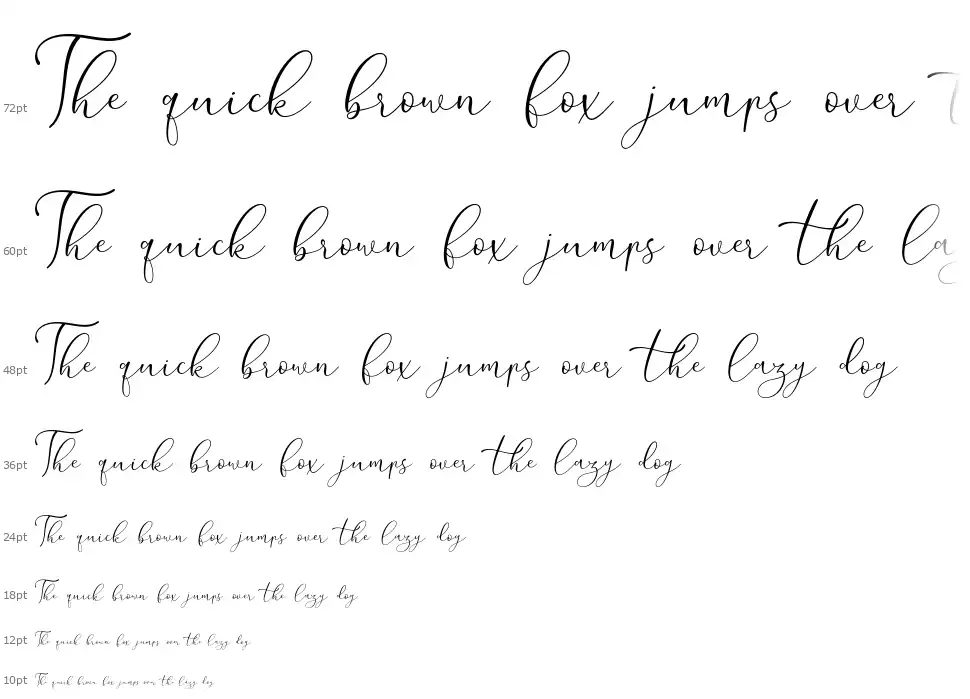 72pt The quick brown fox jumps over t
60pt The quick brown fox jumps over the la
48pt The quick brown fox jumps over the lazy dog
36pt The quick brown fox jumps over the lazy dog
24pt The quick brown fox jumps over the lazy dog
18pt The quick brown fox jumps over the lazy dog
12pt The quick brown fox jumps over the lazy dog
10pt The quick brown fox jumps over the lazy dog